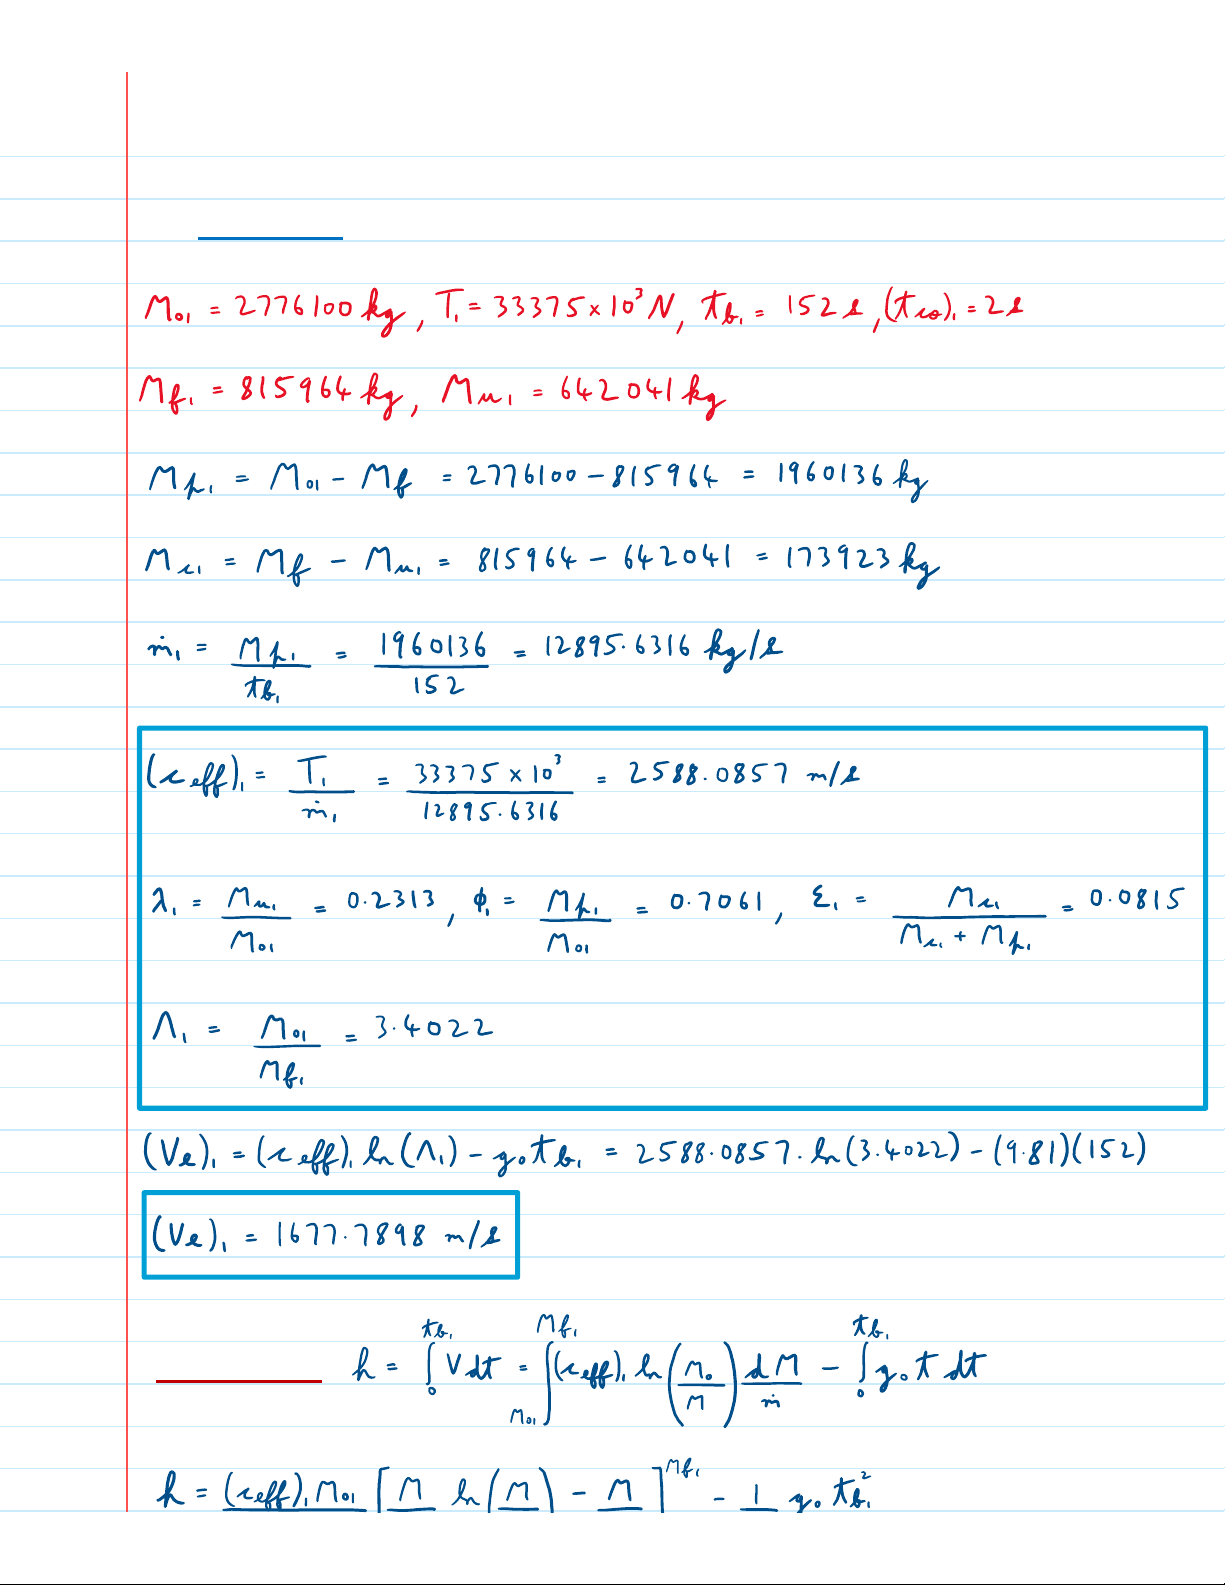 M₀₁ = 2776100 kg, T₁ = 33375 × 10³ N, t_b₁ = 152 s, (t_co)₁ = 2 s
M_f₁ = 815964 kg, M_u₁ = 642041 kg
M_p₁ = M₀₁ - M_f = 2776100 - 815964 = 1960136 kg
M_c₁ = M_f - M_u₁ = 815964 - 642041 = 173923 kg
ṁ₁ = M_p₁ / t_b₁ = 1960136 / 152 = 12895.6316 kg/s
(c_eff)₁ = T₁ / ṁ₁ = 33375 × 10³ / 12895.6316 = 2588.0857 m/s
λ₁ = M_u₁ / M₀₁ = 0.2313, ϕ₁ = M_p₁ / M₀₁ = 0.7061, Ɛ₁ = M_c₁ / (M_c₁ + M_p₁) = 0.0815
Λ₁ = M₀₁ / M_f₁ = 3.4022
(Ve)₁ = (c_eff)₁ ln(Λ₁) - g₀ t_b₁ = 2588.0857 . ln(3.4022) - (9.81)(152)
(Ve)₁ = 1677.7898 m/s
h = ∫₀^t_b₁ V dt = ∫_M₀₁^M_f₁ (c_eff)₁ ln(M₀ / M) dM / ṁ - ∫₀^t_b₁ g₀ t dt
h = (c_eff)₁ M₀₁ [ M ln( M ) - M ]^M_f₁ - 1 g₀ t_b₁²